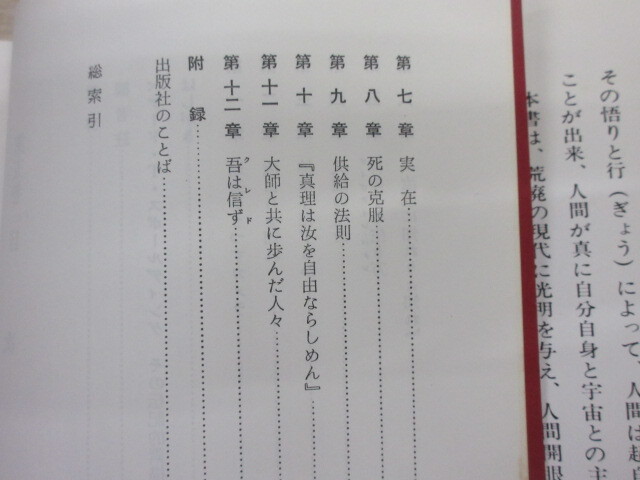 その悟りと行（ぎょう）によって、人間は
ことが出来、人間が真に自分自身と宇宙との主
本書は、荒廃の現代に光明を与え、人間開眼
第七章 実在
第八章 死の克服
第九章 供給の法則
第十章 『真理は汝を自由ならしめん』
第十一章 大師と共に歩んだ人々
第十二章 吾は信ず
クレド
附録
出版社のことば
総索引